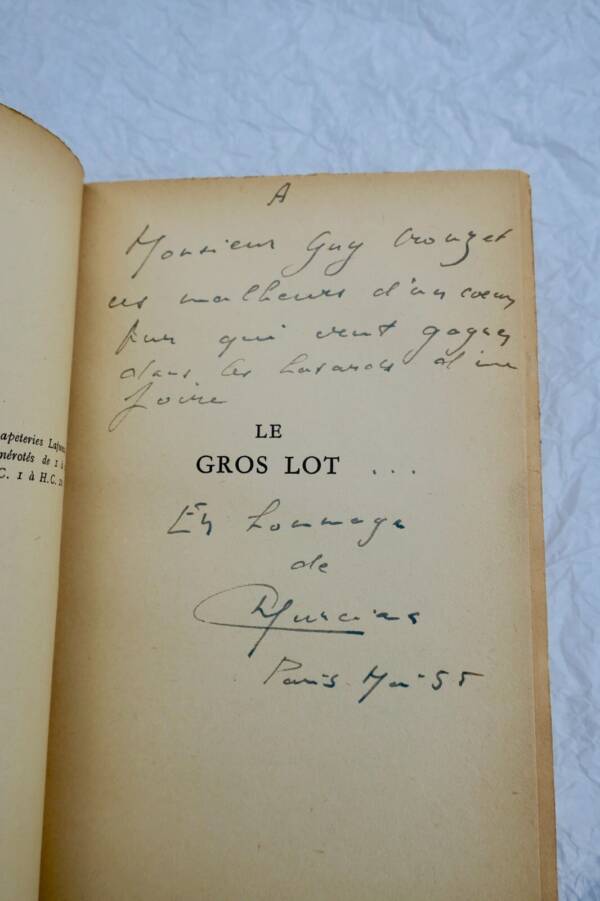 apeteries Lafu
mérotés de 1 à
C. 1 à H.C.
A
Monsieur Guy Crouzet
ces malheurs d'un coeur
pur qui veut gagner
dans les hasards d'une
foire
LE
GROS LOT ...
En hommage
de
Murcias
Paris. Mai 55